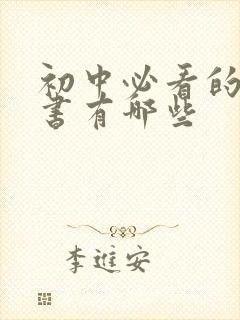 初中必看的
书有哪些
李進安